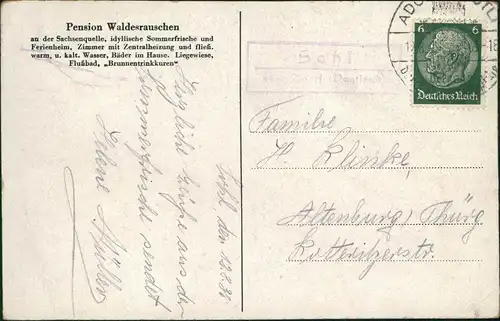 Pension Waldesrauschen
an der Sachsenquelle, idyllische Sommerfrische und
Ferienheim, Zimmer mit Zentralheizung und fließ.
warm. u. kalt. Wasser, Bäder im Hause. Liegewiese,
Flußbad, „Brunnentrinkkuren“
Sohl den 12.8.38
Herzliche Grüße aus der
Sommerfrische sendet
Müller
Sohl
ADO
6 6
Deutsches Reich
Familie
H. Klinke,
Altenburg Thürg